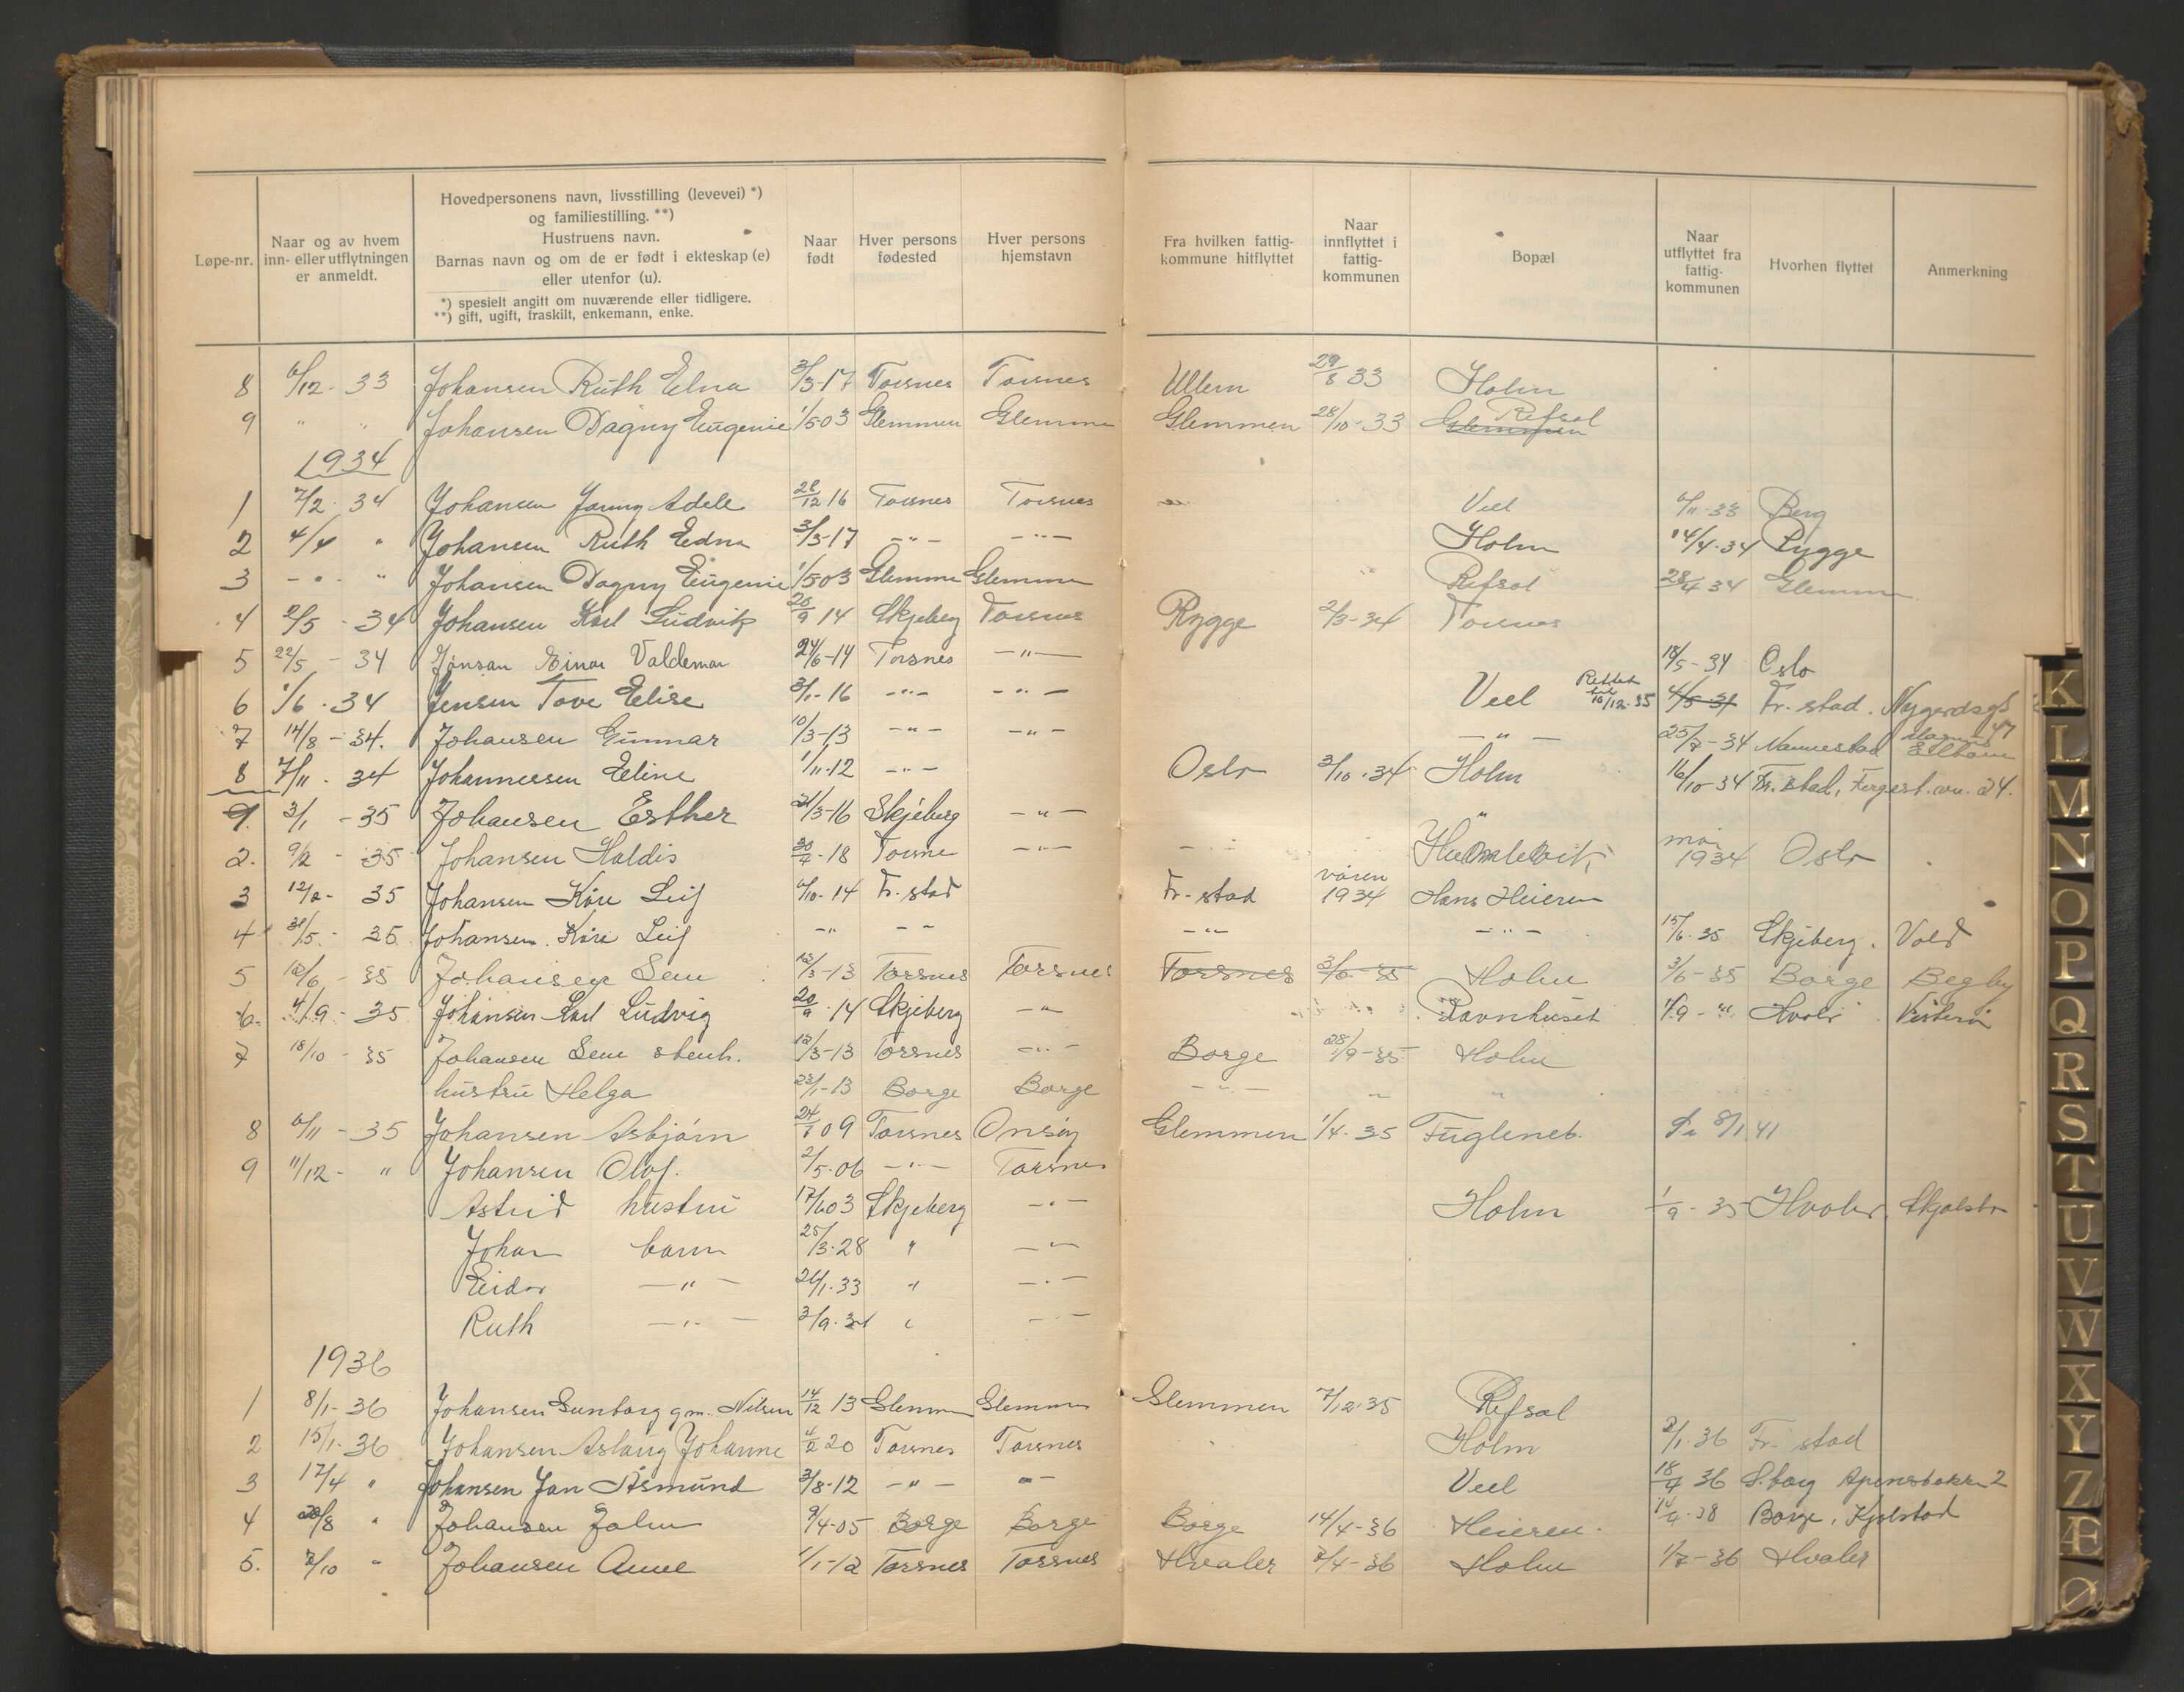 Løpe-nr. | Naar og av hvem inn- eller utflytningen er anmeldt. | Hovedpersonens navn, livsstilling (levevei) *) og familiestilling. **) Hustruens navn. Barnas navn og om de er født i ekteskap (e) eller utenfor (u). *) spesielt angitt om nuværende eller tidligere. **) gift, ugift, fraskilt, enkemann, enke. | Naar født | Hver persons fødested | Hver persons hjemstavn | Fra hvilken fattig-kommune hitflyttet | Naar innflyttet i fattig-kommunen | Bopæl | Naar utflyttet fra fattig-kommunen | Hvorhen flyttet | Anmerkning
8 6/12-33 Johansen Ruth Edna 3/3-17 Torsnes Torsnes Ullern 29/8 33 Holm
9 " " Johansen Dagny Eugenie 1/5 03 Glemmen Glemmen Glemmen 28/10-33 Glemmen Refsal
1934
1 7/2-34 Johansen Adele 28/12 16 Torsnes Torsnes Veel 6/11-33 Berg
2 4/4 " Johansen Ruth Edna 3/3-17 -"- -"- Holm 14/4-34 Rygge
3 -"- " Johansen Dagny Eugenie 1/5 03 Glemmen Glemmen Refsal 28/4 34 Glemmen
4 2/5-34 Johansen Karl Ludvik 20/9 14 Skjeberg Torsnes Rygge 2/3-34 Torsnes
5 22/5-34 Jonsan Einar Valdemar 24/6-14 Torsnes -"- 18/5-34 Oslo
6 1/6-34 Jensen Tove Elise 3/1-16 -"- -"- Veel Rettet til 10/12-35 4/5-34 Fr.stad. Nygårdsgt 47
7 14/8-34. Johansen Gunnar 10/3-13 -"- -"- -"- 25/7-34 Nannestad
8 7/11-34 Johannessen Eline 1/11-12 -"- Oslo 3/10-34 Holm 16/10-34 Fr.stad, 24.
1. 3/1-35 Johansen Esther 21/3-16 Skjeberg -"- "
2. 9/2-35 Johansen Haldis 30/4-18 Torsne -"- Humlevik mai 1934 Oslo
3 12/2-35 Johansen Kåre Leif 6/10-14 Fr.stad Fr.stad våren 1934 Hans Heieren
4 31/5-35 Johansen Kåre Leif -"- -"- -"- -"- 15/6-35 Skjeberg. Vold
5 12/6-35 Johansen Sem 12/3-13 Torsnes Torsnes Torsnes 3/6-35 Holm 3/6-35 Borge Begby
6. 4/9-35 Johansen Karl Ludvig 20/9-14 Skjeberg -"- Havnhuset 1/9-" Hvaler
7 18/10-35 Johansen Sem stenh. 12/3-13 Torsnes -"- Borge 28/9-35 Holm
hustru Helga 23/1-13 Borge Borge -"- " "
8 6/11-35 Johansen Asbjørn 24/1 09 Torsnes Onsøy Glemmen 1/4-35 Fuglenet. 8/1 41
9 11/12-" Johansen Olaf. 2/5-06 -"- Torsnes
Astrid hustru 17/6 03 Skjeberg -"- Holm 1/9-35 Hvaler.
Johan barn 25/3-28 " -"-
Eidar -"- 21/1-33 " -"-
Ruth -"- 3/9-34 " -"-
1936
1 8/1-36 Johansen Sunborg gm. Nilsen 14/12 13 Glemmen Glemmen Glemmen 7/12-35 Refsal
2 15/1-36 Johansen Aslaug Johanne 4/2 20 Torsnes Torsnes Holm 2/1-36 Fr.stad
3 17/4 " Johansen Jan Asmund 3/8-12 -"- -"- Veel 18/4 36 S.borg Apenesbakken 2
4 20/8 " Johansen John 9/4-05 Borge Borge Borge 14/4-36 Heieren. 14/4-38 Borge, Kjølstad
5. 2/10 " Johansen Anne 1/1-12 Torsnes Torsnes Hvaler 2/4-36 Holm 1/7-36 Hvaler
K
L
M
N
O
P
Q
R
S
T
U
V
W
X
Y
Z
Æ
Ø